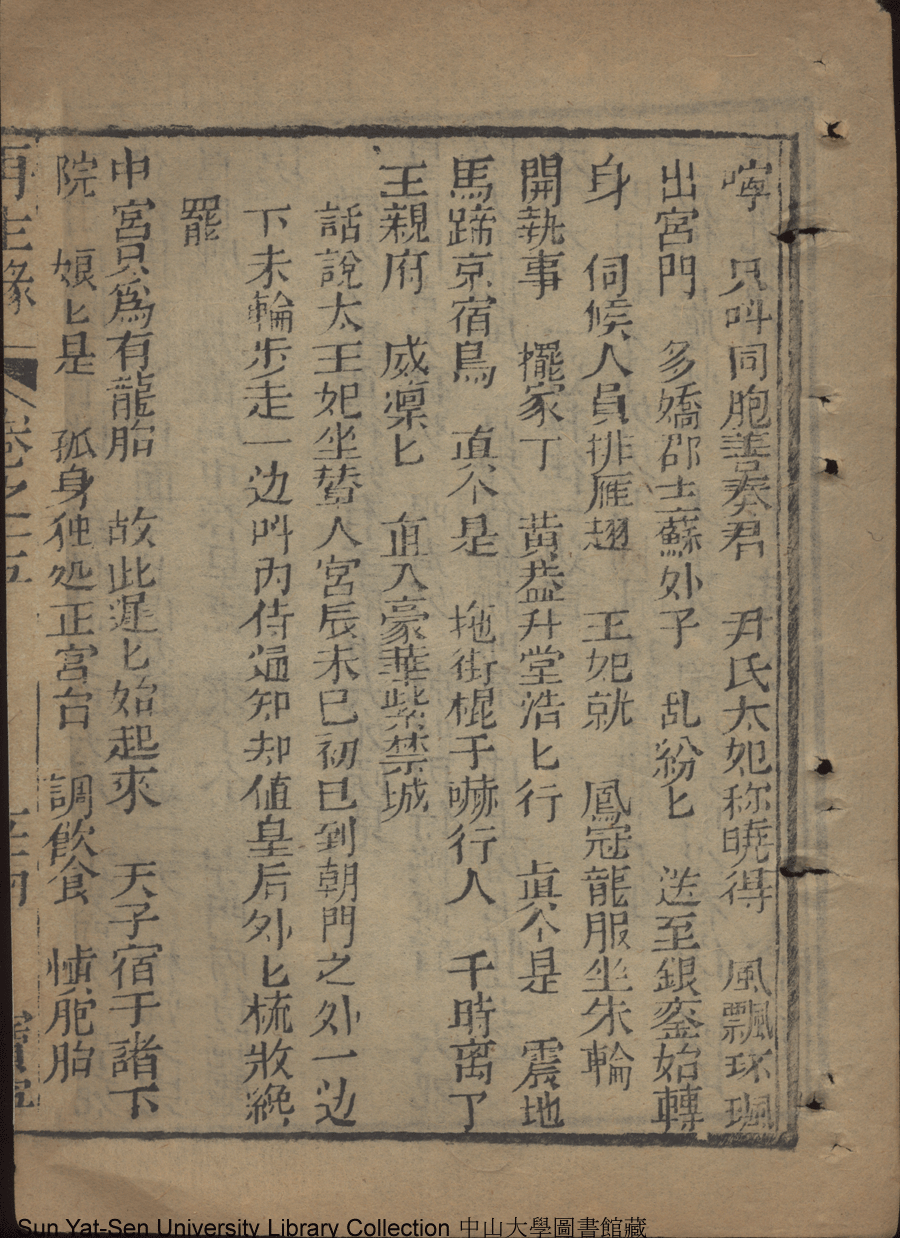 嚀　只呌同胞善奏君　尹氏太妃称曉得　風飄环珮
出宮門　多嬌邵士蘇外子　乱紛匕　送至銀鑾始轉
身　伺候人員排雁翅　王妃就　鳳冠龍服坐朱輪
開執事　擺家丁　黄盖升堂浩匕行　真个是　震地
馬蹄京宿鳥　真个是　拖街棍于嚇行人　千時离了
王親府　威凜匕　直入豪華紫禁城
話說太王妃坐輦人宮辰未巳初巳到朝門之外一边
下未輪步走一边呌內侍通知却值皇后外匕梳妝絶
罷
中宮只爲有龍胎　故此遲匕始起來　天子宿于諸下
院　娘匕是　孤身独処正宮台　調飲食　慎胞胎
再生緣　卷之十五
Sun Yat-Sen University Library Collection 中山大學圖書館藏